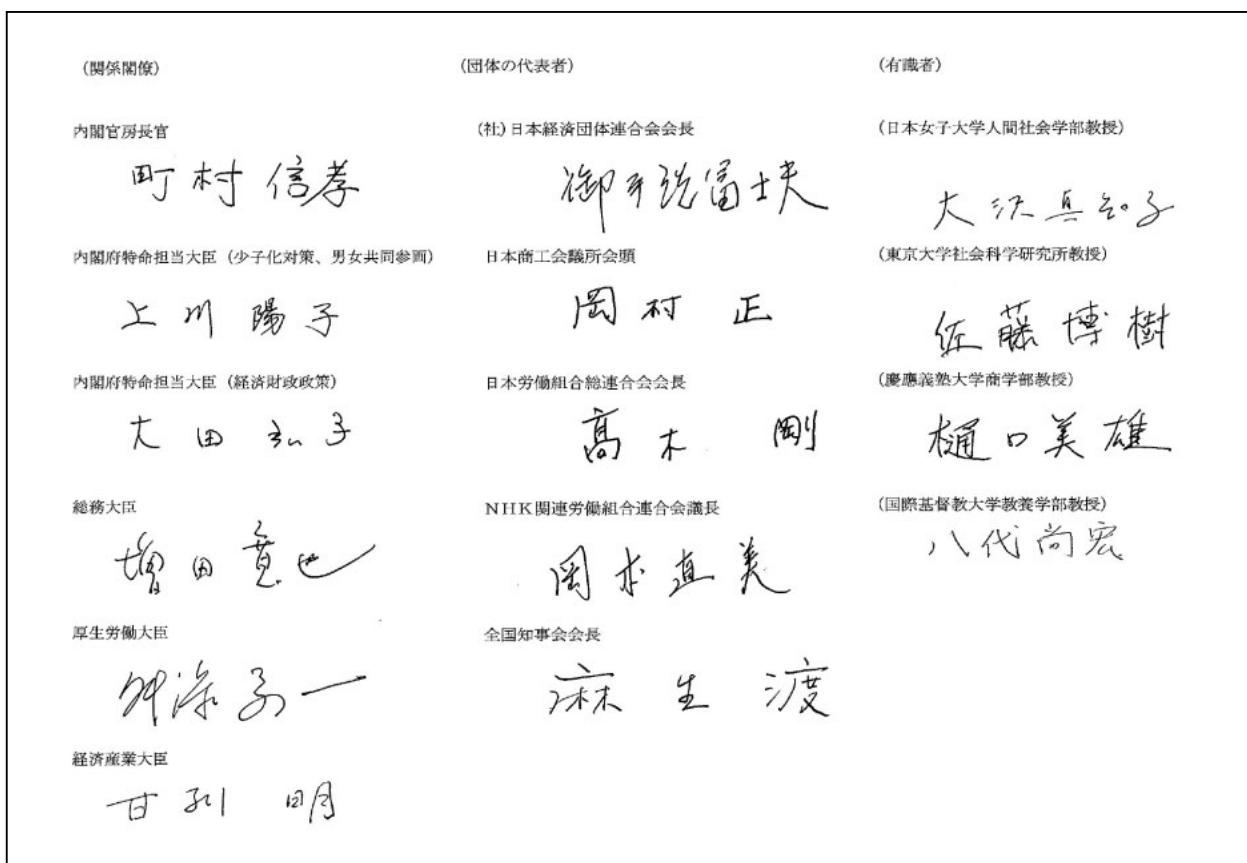 (関係閣僚)
内閣官房長官
町村信孝
内閣府特命担当大臣（少子化対策、男女共同参画）
上川陽子
内閣府特命担当大臣（経済財政政策）
大田弘子
総務大臣
増田寛也
厚生労働大臣
舛添要一
経済産業大臣
甘利 明
(団体の代表者)
(社)日本経済団体連合会会長
御手洗冨士夫
日本商工会議所会頭
岡村 正
日本労働組合総連合会会長
髙木 剛
NHK関連労働組合連合会議長
岡本直美
全国知事会会長
麻生 渡
(有識者)
(日本女子大学人間社会学部教授)
大沢真知子
(東京大学社会科学研究所教授)
佐藤博樹
(慶應義塾大学商学部教授)
樋口美雄
(国際基督教大学教養学部教授)
八代尚宏